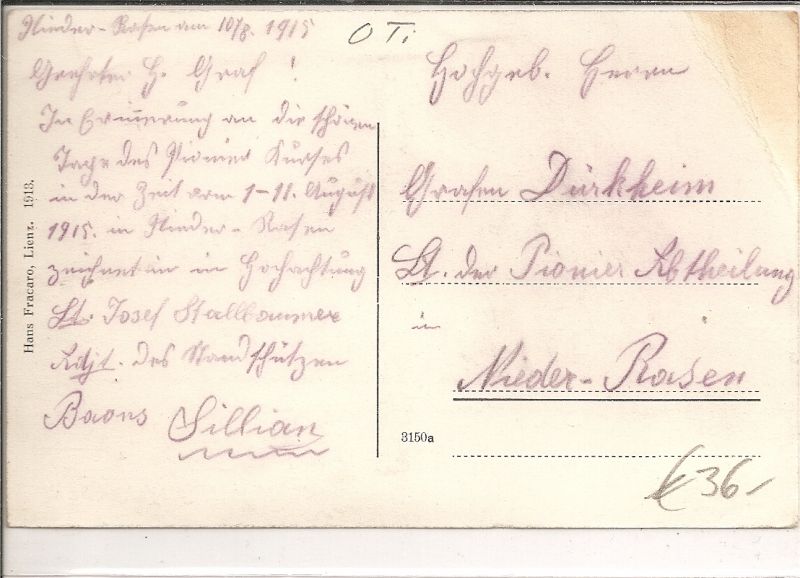 Nieder-Rasen am 10/8. 1915
Geehrter H. Graf!
In Erinnerung an die schönen
Tage des Pionier Kurses
in der Zeit vom 1-11. August
1915. in Nieder-Rasen
zeichnet in Hochachtung
Lt. Josef Stallbaumer
Adjt. des Standschützen
Baons Sillian
O Ti
Hochgeb. Herrn
Grafen Dürkheim
Lt. der Pionier Abtheilung
in
Nieder-Rasen
3150a
€ 36-
Hans Fracaro, Lienz. 1913.